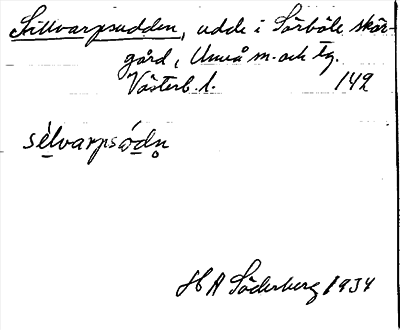 Sillvarpsudden, udde i Sörböle skär-
gård, Umeå m. och tg.
Västerb. l. 142
sèlvarpsódn
H A Söderberg 1934